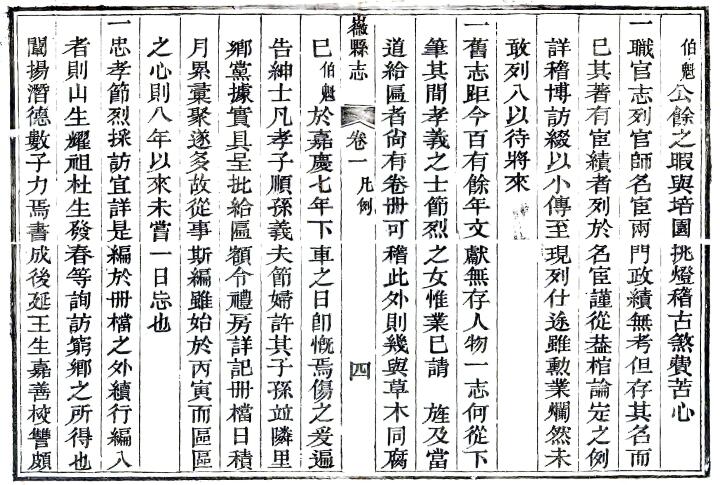 伯魁公餘之暇與培園挑燈稽古煞費苦心
一職官志列官師名宦兩門政績無考但存其名而
已其著有宦績者列於名宦謹從葢棺論定之例
詳稽博訪綴以小傳至現列仕途雖勳業爛然未
敢列入以待將來
一舊志距今百有餘年文獻無存人物一志何從下
筆其間孝義之士節烈之女惟業已請 旌及當
道給區者尙有卷冊可稽此外則幾與草木同腐
縣志 卷一 凡例 四
已伯魁於嘉慶七年下車之日卽慨焉傷之爰遍
告紳士凡孝子順孫義夫節婦許其子孫並隣里
鄉黨據實具呈批給區額令禮房詳記冊檔日積
月累彙聚遂多故從事斯編雖始於丙寅而區區
之心則八年以來未嘗一日忘也
一忠孝節烈採訪宜詳是編於冊檔之外續行編入
者則山生耀祖杜生發春等詢訪窮鄉之所得也
闡揚潛德數子力焉書成後延王生嘉善校讐頗